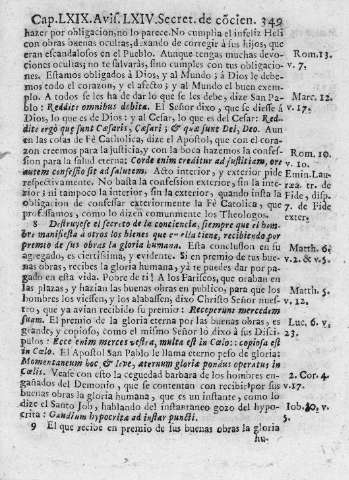 Cap.LXIX. Avis. LXIV. Secret. de cõcien. 349
hazer por obligacion, no lo parece. No cumplia el infeliz Heli
con obras buenas ocultas, dexando de corregir à sus hijos, que
eran escandalosos en el Pueblo. Aunque tengas muchas devo-
ciones ocultas; no te salvaràs, sino cumples con tus obligacio-
nes. Estamos obligados à Dios, y al Mundo; à Dios le debe-
mos todo el corazon, y el afecto; y al Mundo el buen exem-
plo. A todos se les ha de dar lo que se les debe, dize San Pa-
blo: Reddite omnibus debita. El Señor dixo, que se diesse à
Dios, lo que es de Dios: y al Cesar, lo que es del Cesar: Red-
dite ergò que sunt Cæsaris, Cæsari; & quæ sunt Dei, Deo. Aun
en las cosas de Fè Catholica, dize el Apostol, que con el cora-
zon creemos para la justicia, y con la boca hazemos la confes-
sion para la salud eterna: Corde enim creditur ad justitiam, ore
autem confessio fit ad salutem. Acto interior, y exterior pide
respectivamente. No basta la confession exterior, sin la inte-
rior: ni tampoco la interior, sin la exterior, quando insta la
obligacion de confessar exteriormente la Fè Catolica, que
professamos, como lo dizen comunmente los Theologos.
8 Destruyese el secreto de la conciencia, siempre que el hom-
bre manifiesta à otros los bienes que en ella tiene, recibiendo por
premio de sus obras la gloria humana. Esta conclusion en su
agregado, es certissima, y evidente. Si en premio de tus bue-
nas obras, recibes la gloria humana, yà te puedes dar por pa-
gado en esta vida. Pobre de ti! A los Fariseos, que oraban en
las plazas, y hazian las buenas obras en publico, para que los
hombres los viessen, y los alabassen, dixo Christo Señor nues-
tro, que ya avian recibido su premio: Receperunt mercedem
suam. El premio de la gloria eterna por las buenas obras, es
grande, y copioso, como el mismo Señor lo dixo à sus Disci-
pulos: Ecce enim merces vestra, multa est in Cœlo: copiosa est
in Cœlo. El Apostol San Pablo le llama eterno peso de gloria:
Momentaneum hoc, & leve, æternum gloriæ pondus operatur in
Cœlis. Vease con esto la ceguedad barbara de los hombres en-
gañados del Demonio, que se contentan con recibir por sus
buenas obras la gloria humana, que es un instante, como lo
dize el Santo Job, hablando del instantaneo gozo del hypo-
crita: Gaudium hypocritæ ad instar puncti.
9 El que recibe en premio de sus buenas obras la gloria
hu-
Rom. 13.
v. 7.
Marc. 12.
v. 17.
Rom. 10.
v. 10.
Emin. Lau-
ræa. tr. de
Fide, disp.
7. de Fide
exter.
Matth. 6.
v. 2. & v. 5.
Matth. 5.
v. 12.
Luc. 6. v.
23.
2. Cor. 4.
v. 17.
Iob. 20. v.
5.